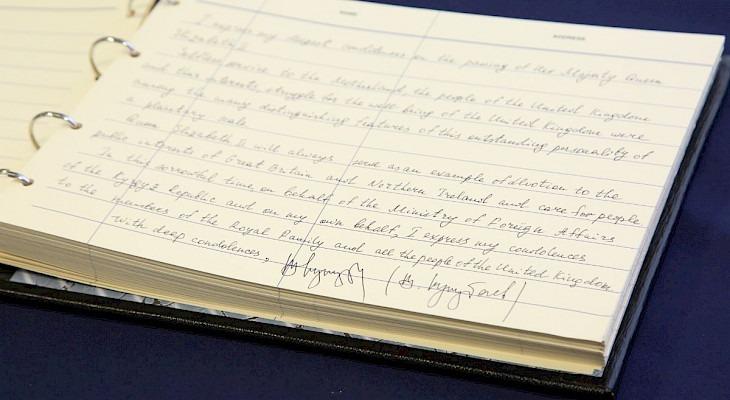 NAME
ADDRESS
I express my deepest condolences on the passing of Her Majesty Queen
Elizabeth II
Selfless service to the Motherland, the people of the United Kingdom
and their interests, struggle for the well-being of the United Kingdom were
among the many distinguishing features of this outstanding personality of
a planetary scale.
Queen Elizabeth II will always serve as an example of devotion to the
public interests of Great Britain and Northern Ireland and care for people
In this sorrowful time, on behalf of the Ministry of Foreign Affairs
of the Kyrgyz Republic and on my own behalf, I express my condolences
to the members of the Royal Family and all the people of the United Kingdom
with deep condolences.